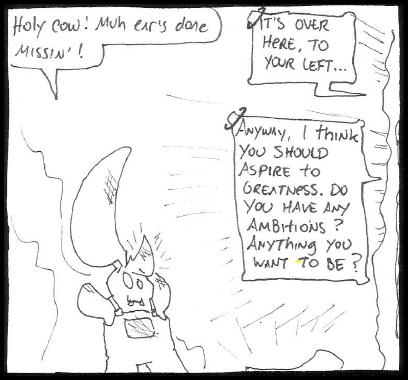 Holy cow! Muh ear's done
missin'!
It's over
here, to
your left...
Anyway, I think
you should
aspire to
greatness. Do
you have any
ambitions?
Anything you
want to be?